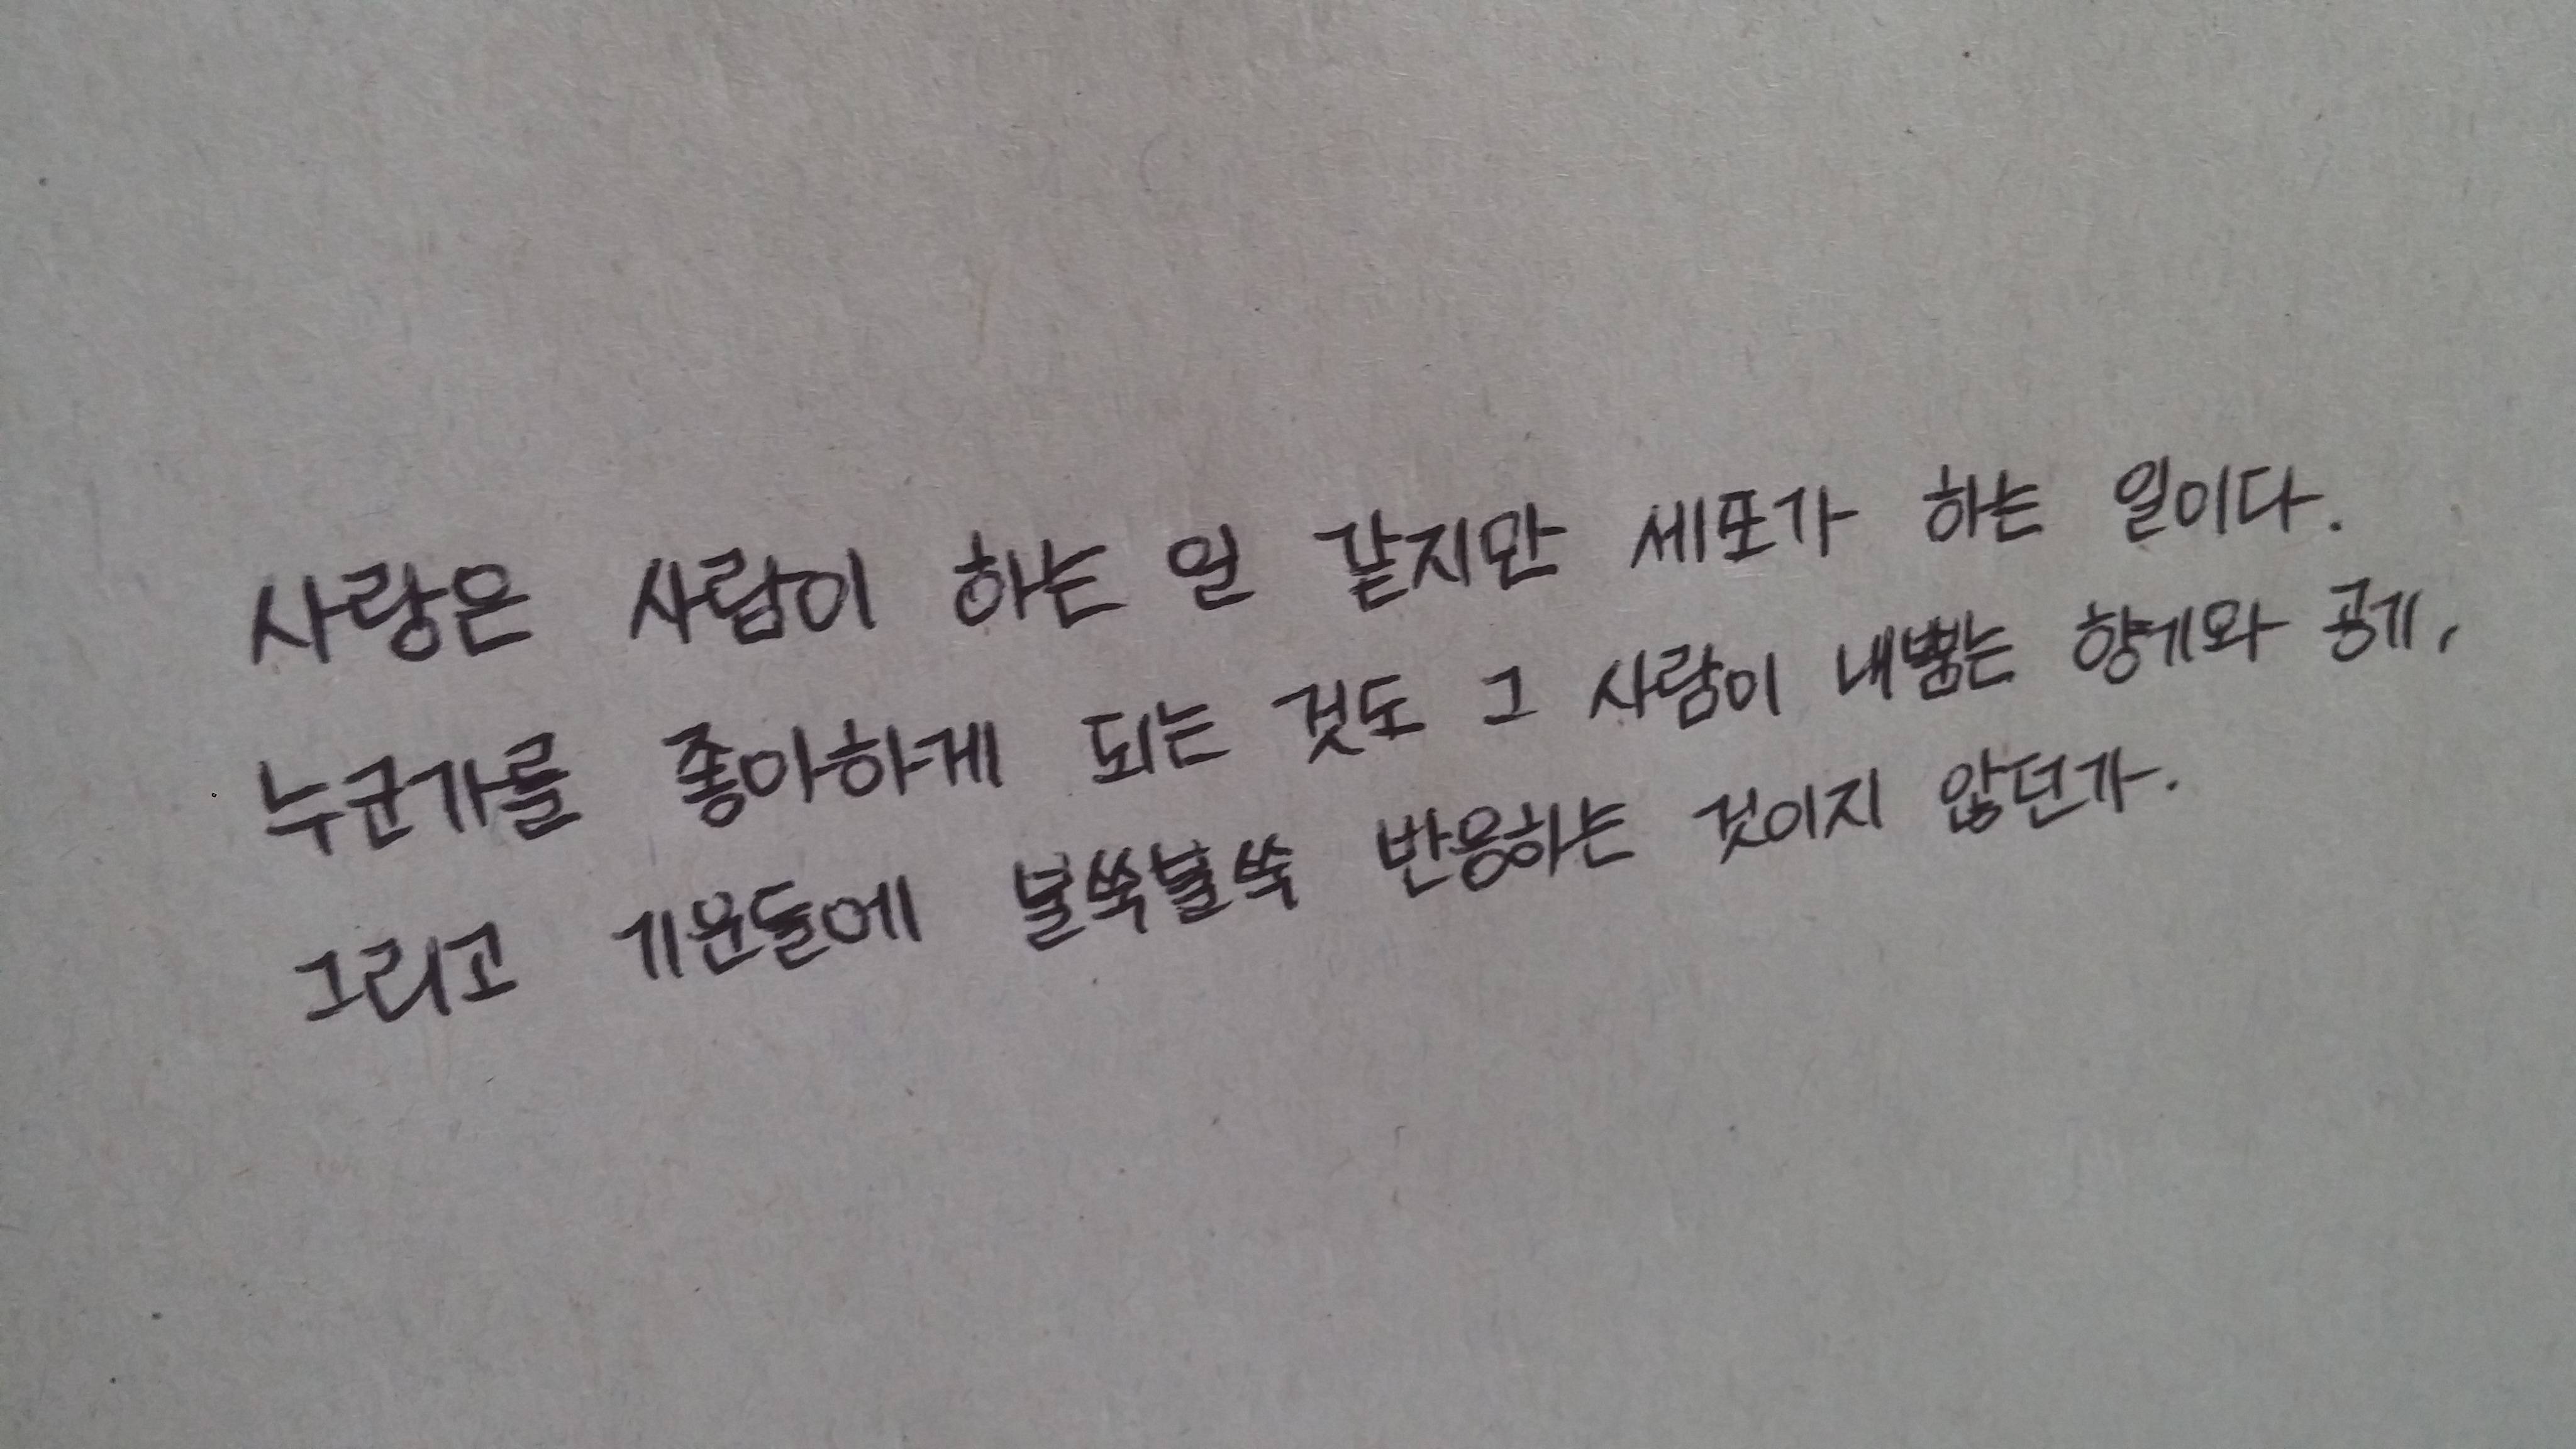 사랑은 사람이 하는 일 같지만 세포가 하는 일이다.
누군가를 좋아하게 되는 것도 그 사람이 내뿜는 향기와 공기,
그리고 기운들에 불쑥불쑥 반응하는 것이지 않던가.